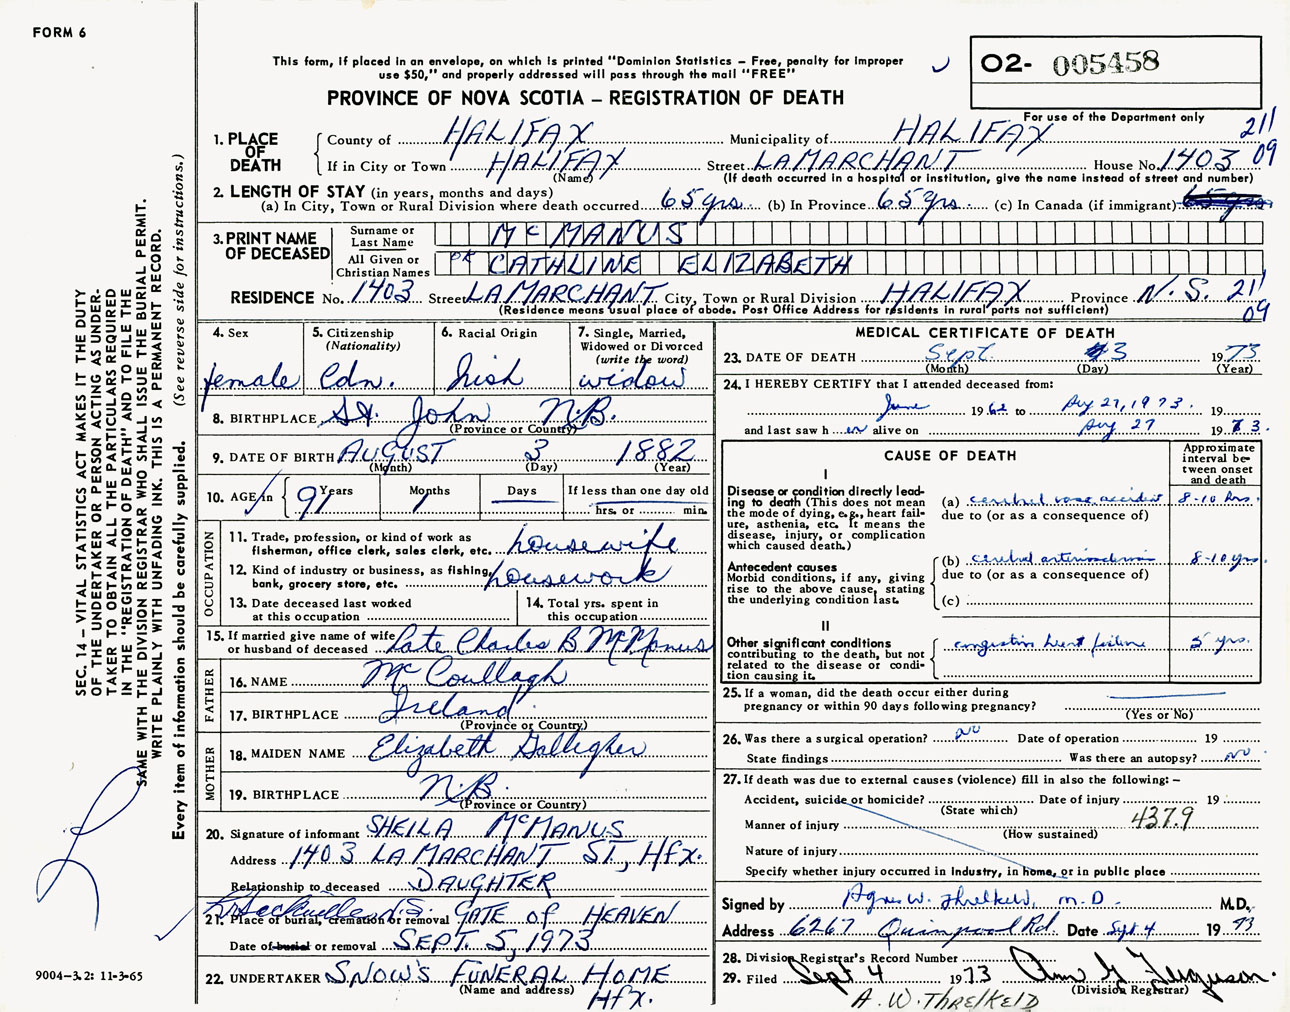 FORM 6
This form, if placed in an envelope, on which is printed "Dominion Statistics – Free, penalty for improper
use $50," and properly addressed will pass through the mail "FREE"
O2- 005458
PROVINCE OF NOVA SCOTIA – REGISTRATION OF DEATH
For use of the Department only
211
09
1. PLACE OF DEATH
County of HALIFAX Municipality of HALIFAX
If in City or Town HALIFAX Street LA MARCHANT House No. 1403
(Name) (If death occurred in a hospital or institution, give the name instead of street and number)
2. LENGTH OF STAY (in years, months and days)
(a) In City, Town or Rural Division where death occurred 65 yrs. (b) In Province 65 yrs. (c) In Canada (if immigrant) 65 yrs
3. PRINT NAME OF DECEASED
Surname or Last Name McMANUS
All Given or Christian Names OR CATHLINE ELIZABETH
RESIDENCE No. 1403 Street LA MARCHANT City, Town or Rural Division HALIFAX Province N.S. 211
(Residence means usual place of abode. Post Office Address for residents in rural parts not sufficient) 09
4. Sex
female
5. Citizenship
(Nationality)
Cdn.
6. Racial Origin
Irish
7. Single, Married,
Widowed or Divorced
(write the word)
widow
8. BIRTHPLACE St. John N.B.
(Province or Country)
9. DATE OF BIRTH AUGUST 3 1882
(Month) (Day) (Year)
10. AGE in 91 Years Months 1 Days If less than one day old
hrs. or min.
OCCUPATION
11. Trade, profession, or kind of work as
fisherman, office clerk, sales clerk, etc. housewife
12. Kind of industry or business, as fishing,
bank, grocery store, etc. housework
13. Date deceased last worked
at this occupation
14. Total yrs. spent in
this occupation
15. If married give name of wife
or husband of deceased Late Charles B McManus
FATHER
16. NAME McCoullagh
17. BIRTHPLACE Ireland
(Province or Country)
MOTHER
18. MAIDEN NAME Elizabeth Gallegher
19. BIRTHPLACE N.B.
(Province or Country)
20. Signature of informant SHEILA McMANUS
Address 1403 LA MARCHANT ST., Hfx.
Relationship to deceased DAUGHTER
L. Sackville N.S.
21. Place of burial, cremation or removal GATE of HEAVEN
Date of burial or removal SEPT. 5, 1973
22. UNDERTAKER SNOW'S FUNERAL HOME
(Name and address) Hfx.
MEDICAL CERTIFICATE OF DEATH
23. DATE OF DEATH Sept. 3 1973
(Month) (Day) (Year)
24. I HEREBY CERTIFY that I attended deceased from:
June 1962 to Aug 27, 1973. 19
and last saw h er alive on Aug 27 1973.
CAUSE OF DEATH
Approximate
interval be-
tween onset
and death
I
Disease or condition directly lead-
ing to death (This does not mean
the mode of dying, e.g., heart fail-
ure, asthenia, etc. It means the
disease, injury, or complication
which caused death.)
(a) cerebral vasc accident 8-10 hrs.
due to (or as a consequence of)
Antecedent causes
Morbid conditions, if any, giving
rise to the above cause, stating
the underlying condition last.
(b) cerebral 8-10 yrs.
due to (or as a consequence of)
(c)
II
Other significant conditions
contributing to the death, but not
related to the disease or condi-
tion causing it.
congestive heart failure 5 yrs.
25. If a woman, did the death occur either during
pregnancy or within 90 days following pregnancy?
(Yes or No)
26. Was there a surgical operation? no Date of operation 19
State findings Was there an autopsy? no
27. If death was due to external causes (violence) fill in also the following: –
Accident, suicide or homicide? Date of injury 19
(State which)
Manner of injury 437.9
(How sustained)
Nature of injury
Specify whether injury occurred in industry, in home, or in public place
Signed by Agnes W. Threlkeld, M.D. M.D.
Address 6267 Quinpool Rd. Date Sept 4 1973
28. Division Registrar's Record Number
29. Filed Sept 4 1973 Ann G Ferguson.
(Division Registrar)
A. W. THRELKELD
SEC. 14 – VITAL STATISTICS ACT MAKES IT THE DUTY
OF THE UNDERTAKER OR PERSON ACTING AS UNDER-
TAKER TO OBTAIN ALL THE PARTICULARS REQUIRED
IN THE "REGISTRATION OF DEATH" AND TO FILE THE
SAME WITH THE DIVISION REGISTRAR WHO SHALL ISSUE THE BURIAL PERMIT.
WRITE PLAINLY WITH UNFADING INK. THIS IS A PERMANENT RECORD.
Every item of information should be carefully supplied. (See reverse side for instructions.)
9004–3.2: 11-3-65